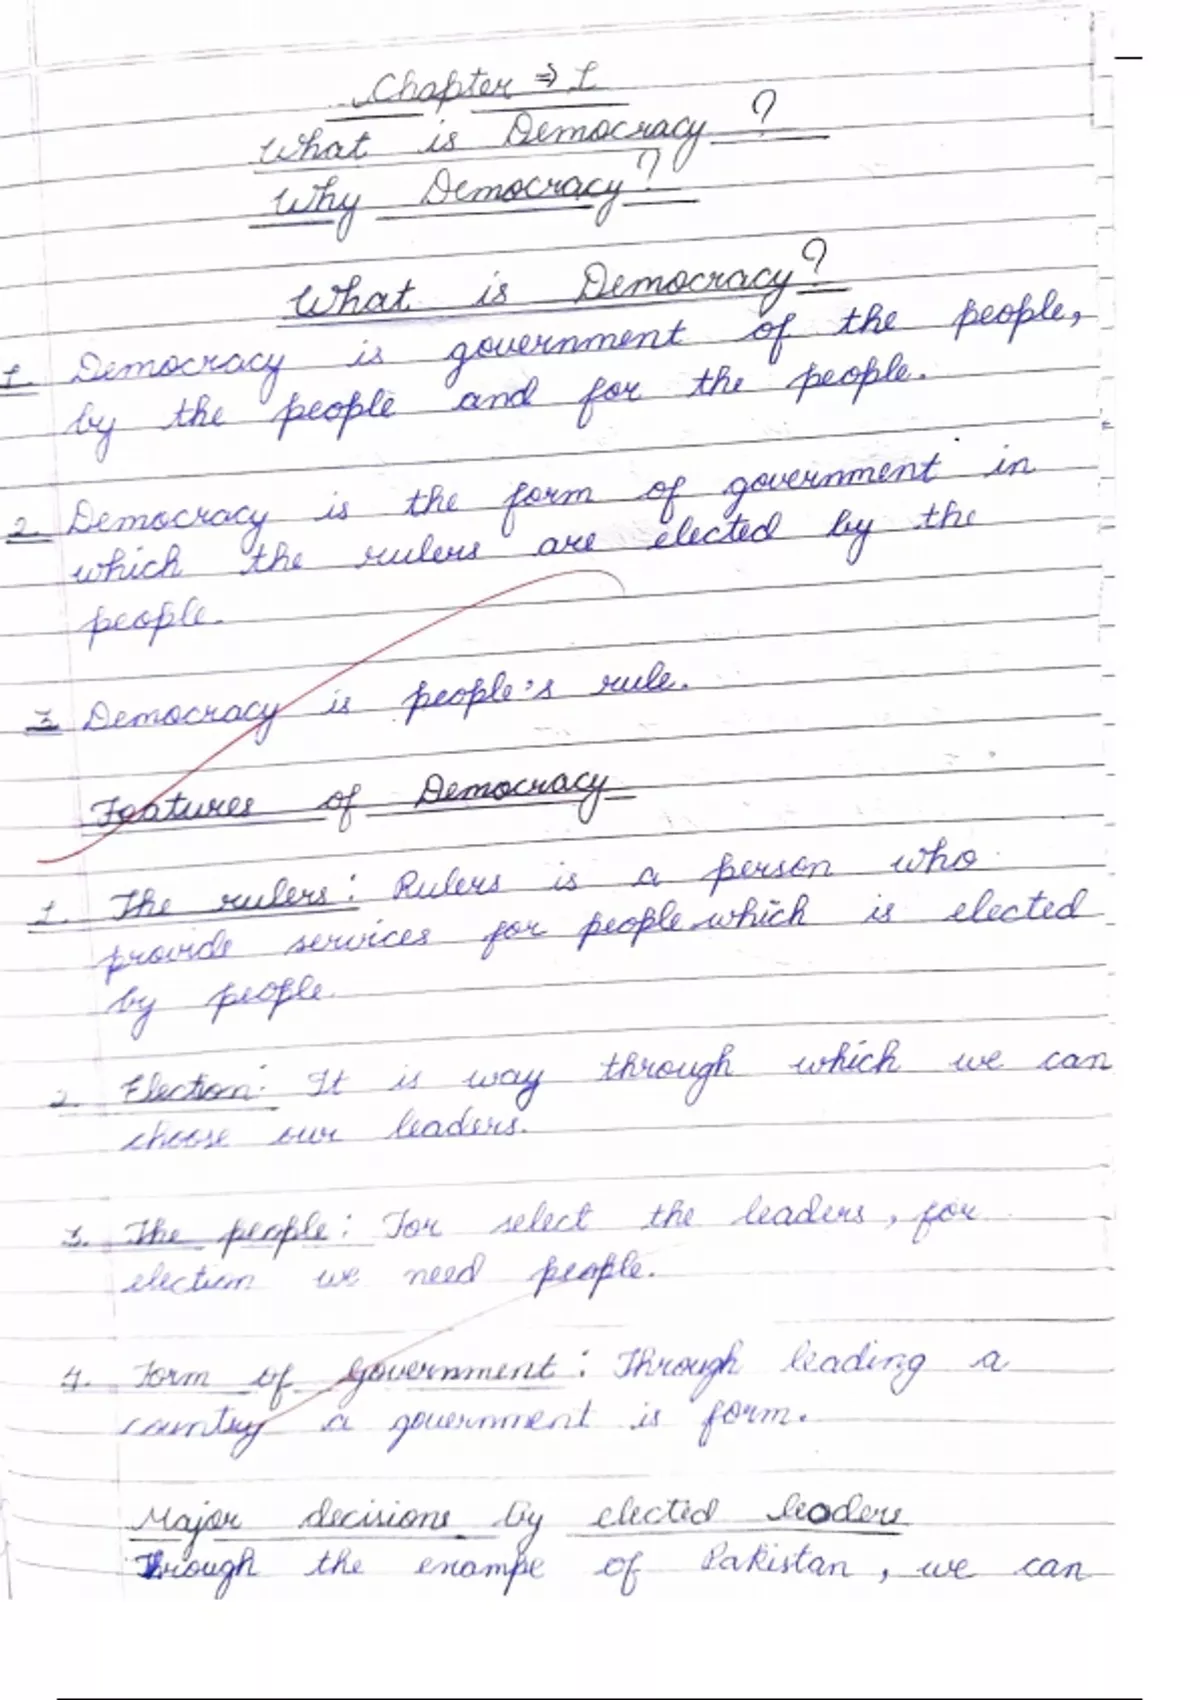 Chapter ⇒ 1
What is Democracy ?
Why Democracy ?
What is Democracy ?
1. Democracy is government of the people,
by the people and for the people.
2. Democracy is the form of government in
which the rulers are elected by the
people.
3. Democracy is people's rule.
Features of Democracy
1. The rulers : Rulers is a person who
provide services for people which is elected
by people.
2. Election : It is way through which we can
choose our leaders.
3. The people : For select the leaders, for
election we need people.
4. Form of government : Through leading a
country a government is form.
Major decisions by elected leaders
Through the exampe of Pakistan, we can